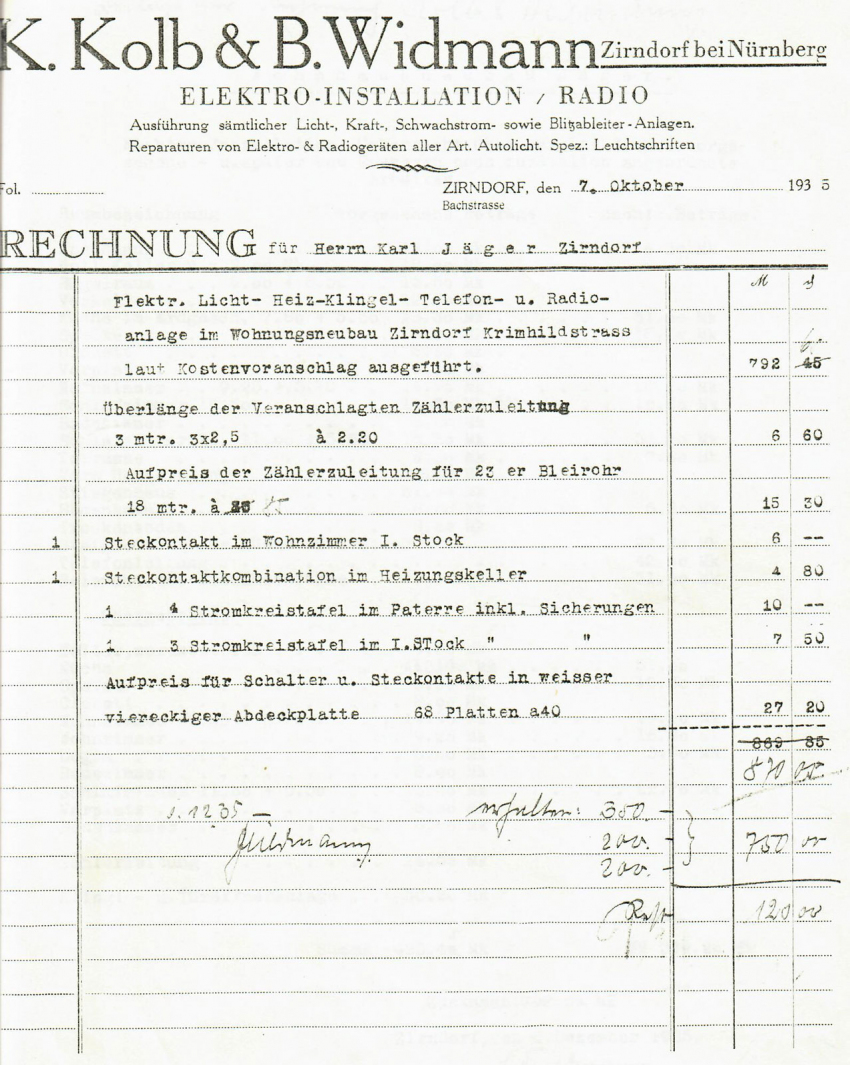 K. Kolb & B. Widmann Zirndorf bei Nürnberg
ELEKTRO-INSTALLATION / RADIO
Ausführung sämtlicher Licht-, Kraft-, Schwachstrom- sowie Blitzableiter-Anlagen.
Reparaturen von Elektro- & Radiogeräten aller Art. Autolicht. Spez.: Leuchtschriften
Fol. ZIRNDORF, den 7. Oktober 1935
Bachstrasse
RECHNUNG für Herrn Karl Jäger Zirndorf
M
Elektr. Licht- Heiz-Klingel- Telefon- u. Radio-
anlage im Wohnungsneubau Zirndorf Krimhildstrass
laut Kostenvoranschlag ausgeführt. 792 45
Überlänge der Veranschlagten Zählerzuleitung
3 mtr. 3x2,5 à 2.20 6 60
Aufpreis der Zählerzuleitung für 23 er Bleirohr
18 mtr. à 85 15 30
1 Steckontakt im Wohnzimmer I. Stock 6 --
1 Steckontaktkombination im Heizungskeller 4 80
1 4 Stromkreistafel im Paterre inkl. Sicherungen 10 --
1 3 Stromkreistafel im I.STock " " 7 50
Aufpreis für Schalter u. Steckontakte in weisser
viereckiger Abdeckplatte 68 Platten a40 27 20
869 85
870
1.12 35 – erhalten: 350. –
Widmann 200. – 750
200. –
Rest 120 00